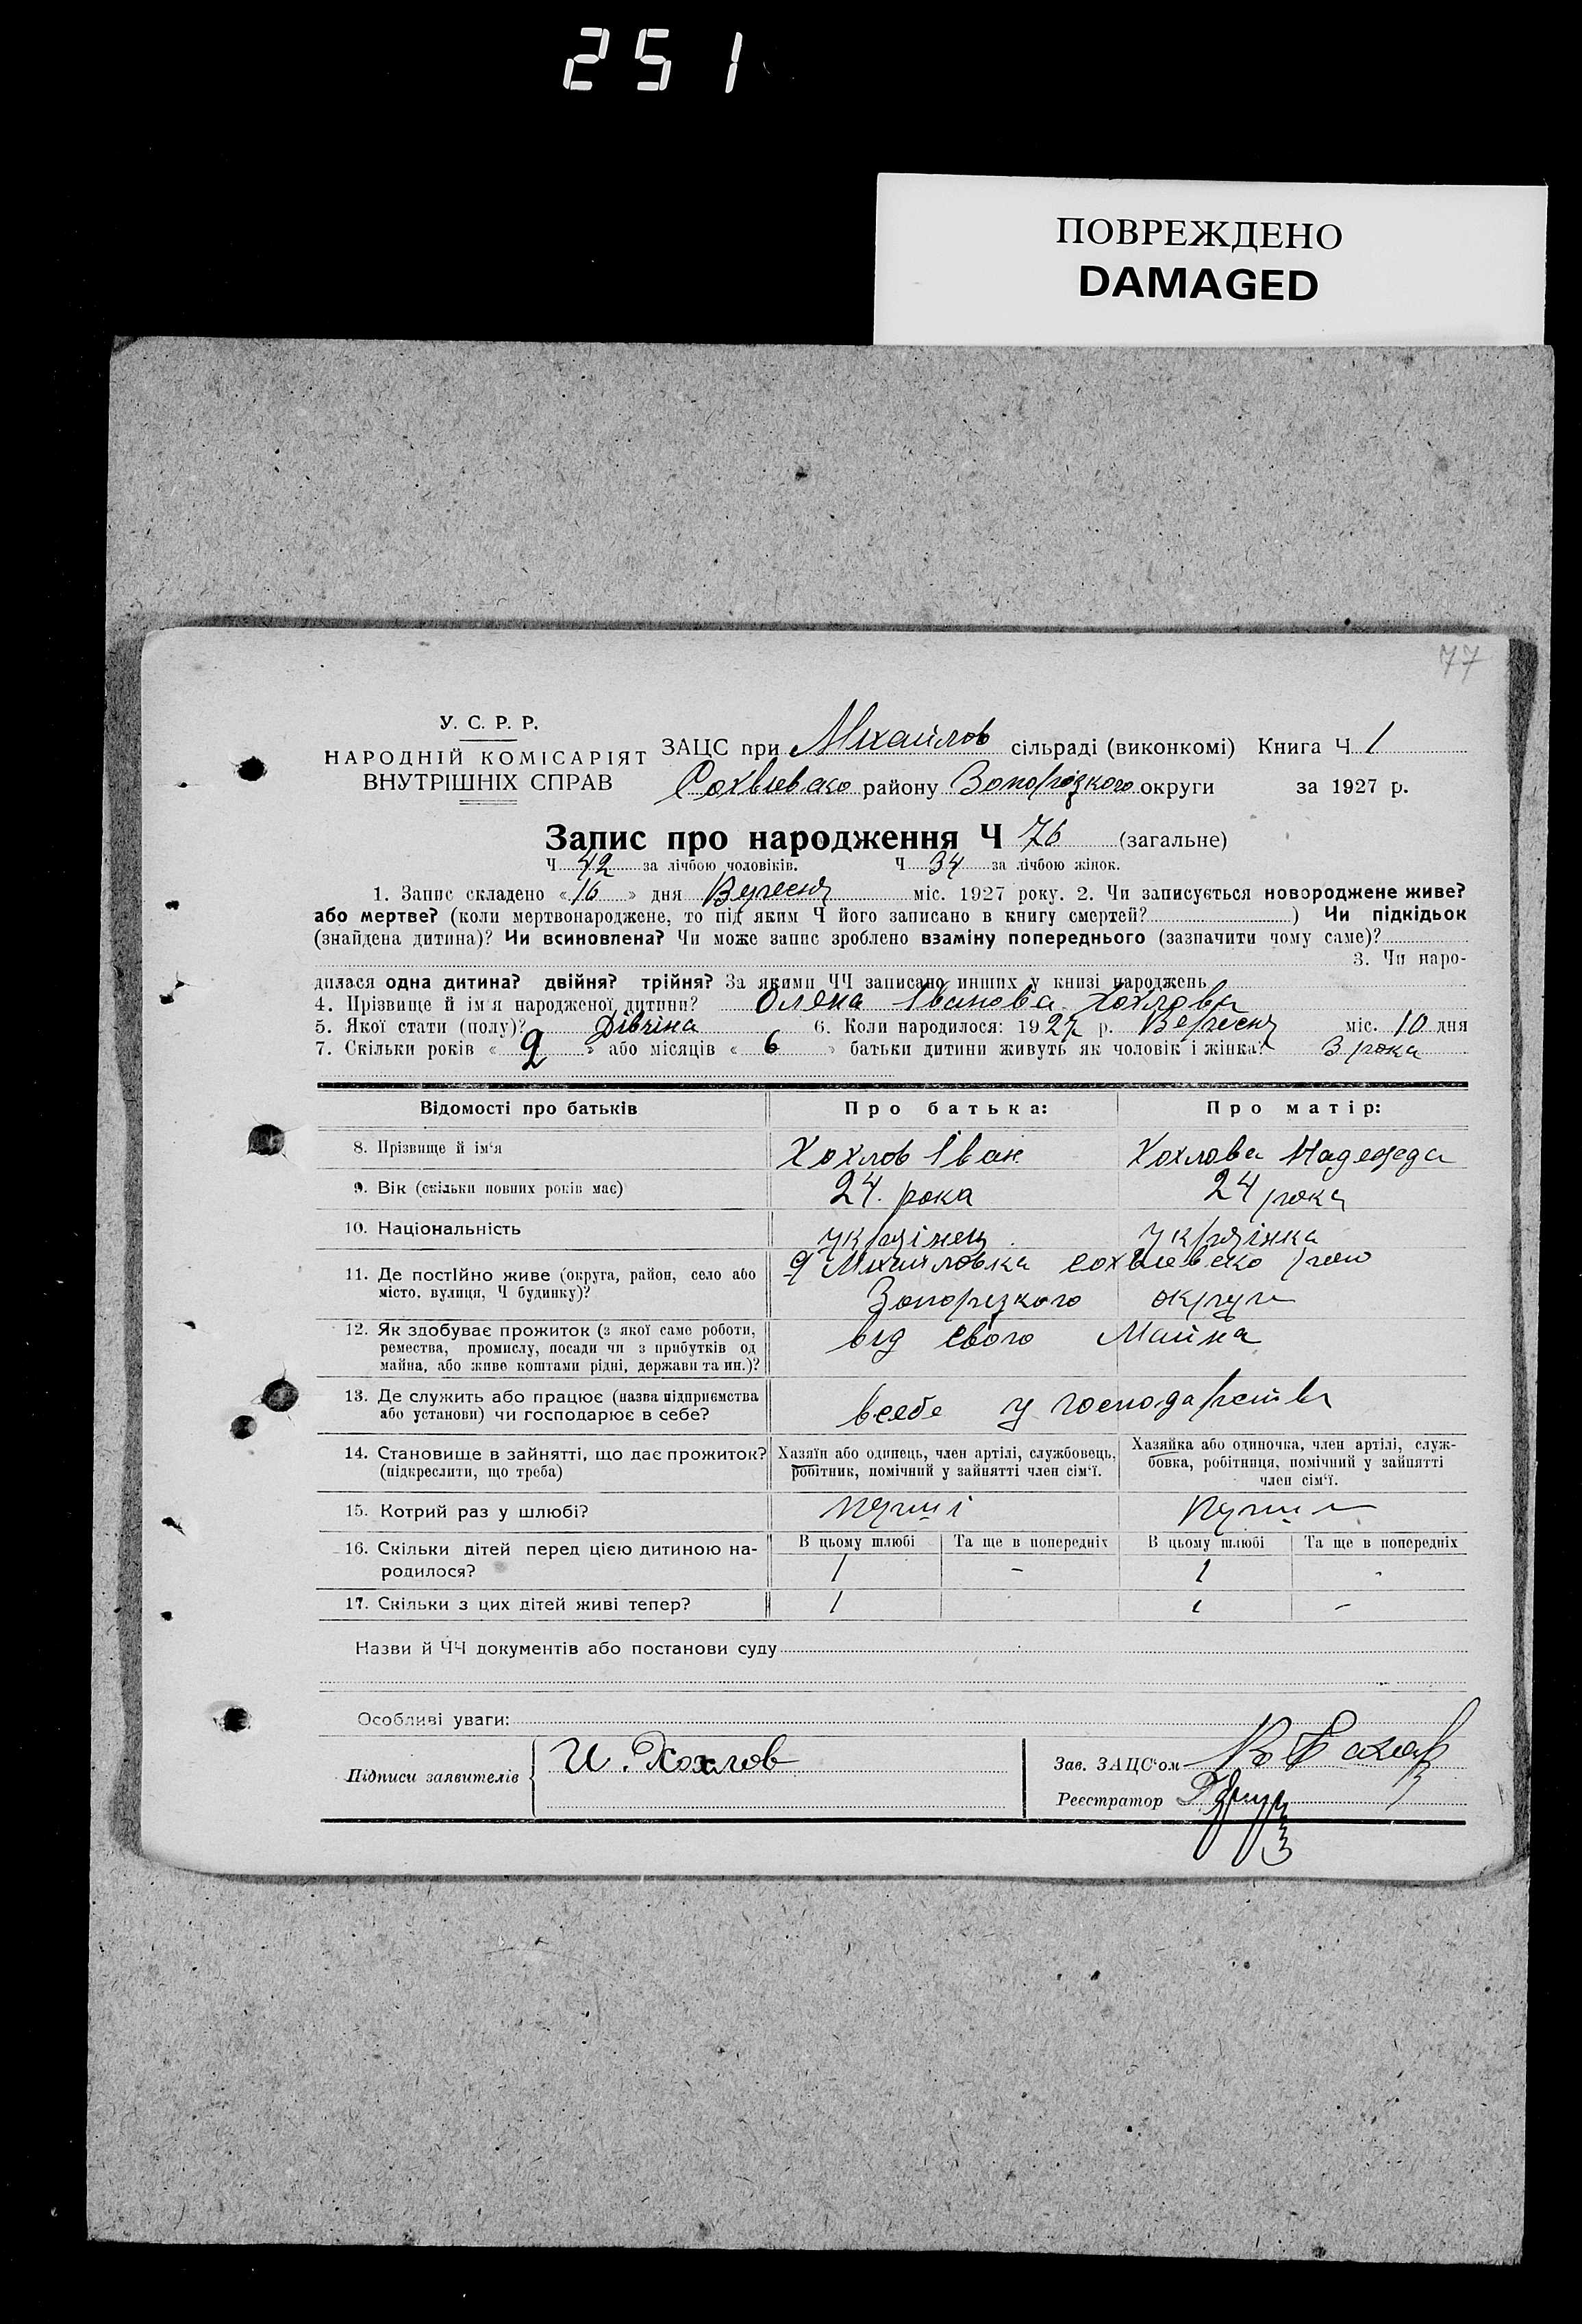 251
ПОВРЕЖДЕНО
DAMAGED
77
У. С. Р. Р.
НАРОДНІЙ КОМІСАРІЯТ
ВНУТРІШНІХ СПРАВ
ЗАЦС при Михайлов сільраді (виконкомі) Книга Ч 1
району округи за 1927 р.
Запис про народження Ч 76 (загальне)
Ч 42 за лічбою чоловіків. Ч 34 за лічбою жінок.
1. Запис складено «16» дня Вересня міс. 1927 року. 2. Чи записується новороджене живе?
або мертве? (коли мертвонароджене, то під яким Ч його записано в книгу смертей? ) Чи підкідьок
(знайдена дитина)? Чи всиновлена? Чи може запис зроблено взаміну попереднього (зазначити чому саме)?
3. Чи наро-
дилася одна дитина? двійня? трійня? За якими ЧЧ записано инших у книзі народжень
4. Прізвище й ім'я народженої дитини? Олена Іванова Хохлова
5. Якої стати (полу)? Дівчіна 6. Коли народилося: 1927 р. Вересня міс. 10 дня
7. Скільки років « 2 » або місяців « 6 » батьки дитини живуть як чоловік і жінка? 3 рока
Відомості про батьків Про батька: Про матір:
8. Прізвище й ім'я Хохлов Іван Хохлова Надежда
9. Вік (скільки повних років має) 24. рока 24 рока
10. Національність українец українка
11. Де постійно живе (округа, район, село або
місто, вулиця, Ч будинку)?
Михайловка
округи
12. Як здобуває прожиток (з якої саме роботи,
ремества, промислу, посади чи з прибутків од
майна, або живе коштами рідні, держави та ин.)?
від свого Майна
13. Де служить або працює (назва підприємства
або установи) чи господарює в себе?
всебе у господарстві
14. Становище в зайнятті, що дає прожиток?
(підкреслити, що треба)
Хазяїн або одинець, член артілі, службовець,
робітник, помічний у зайнятті член сім'ї.
Хазяйка або одиночка, член артілі, служ-
бовка, робітниця, помічний у зайнятті
член сім'ї.
15. Котрий раз у шлюбі?
16. Скільки дітей перед цією дитиною на-
родилося?
В цьому шлюбі Та ще в попередніх В цьому шлюбі Та ще в попередніх
1 - 1 -
17. Скільки з цих дітей живі тепер? 1 1 -
Назви й ЧЧ документів або постанови суду
Особливі уваги:
Підписи заявителів И. Хохлов
Зав. ЗАЦС'ом
Реєстратор